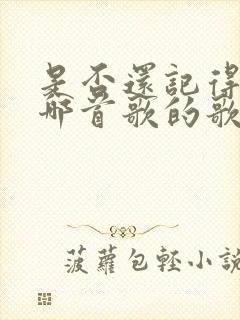 是否還記得
那首歌的歌
菠蘿包輕小說